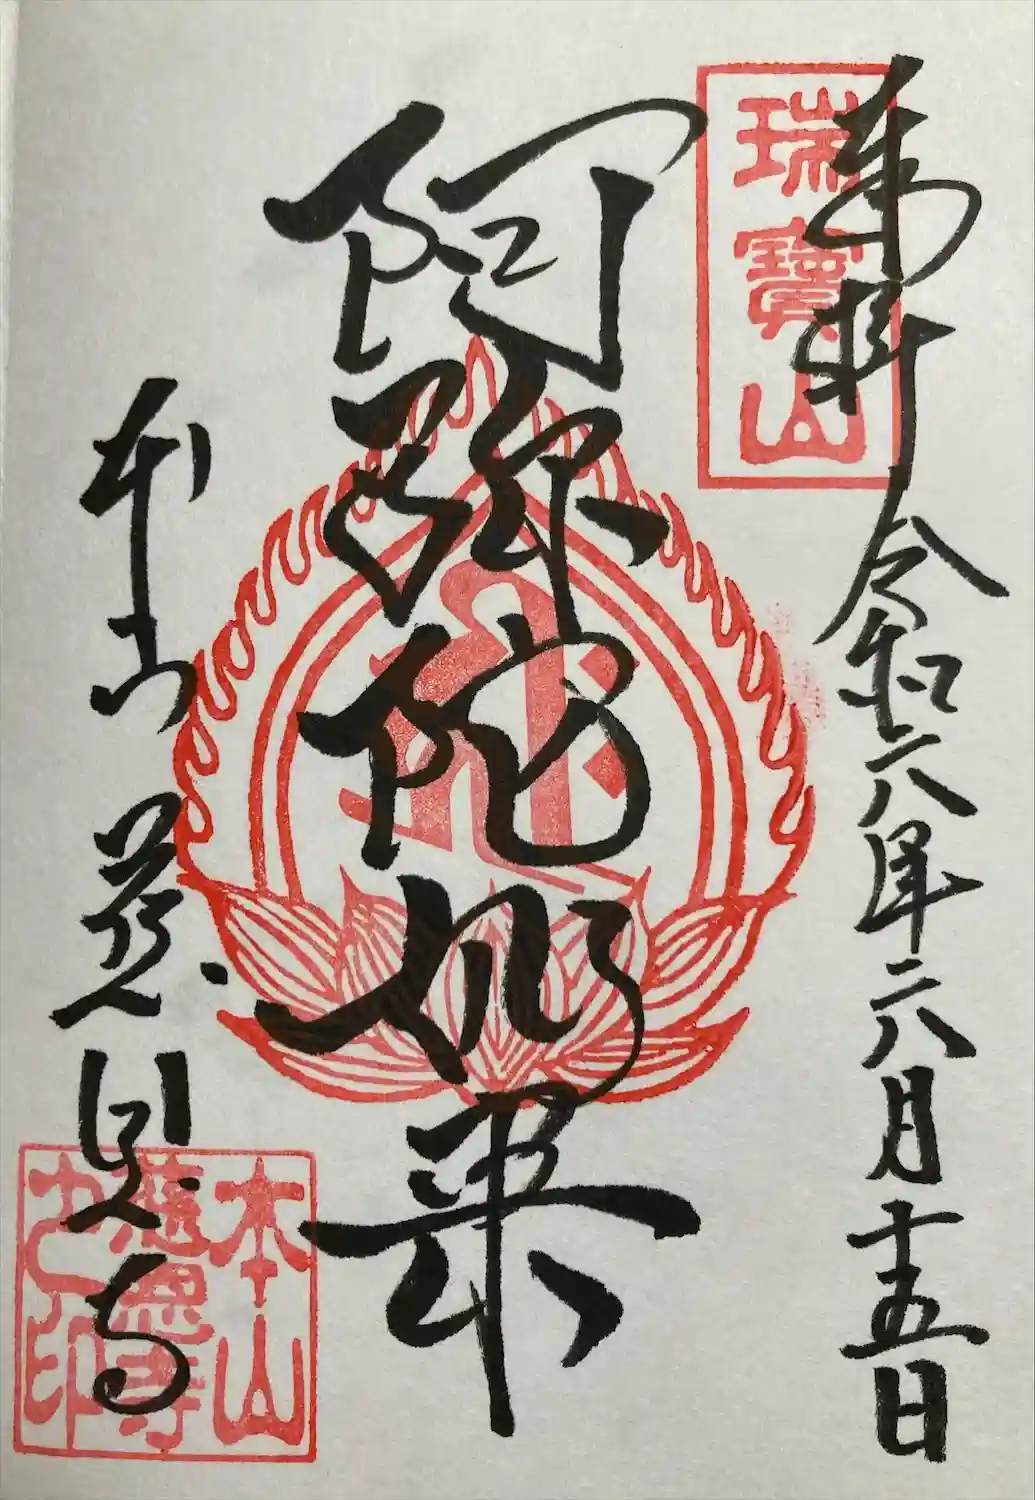 瑞寶山
奉拝 令和六年六月十五日
阿弥陀如来
本山 慈恩寺
本山
慈恩寺
之印